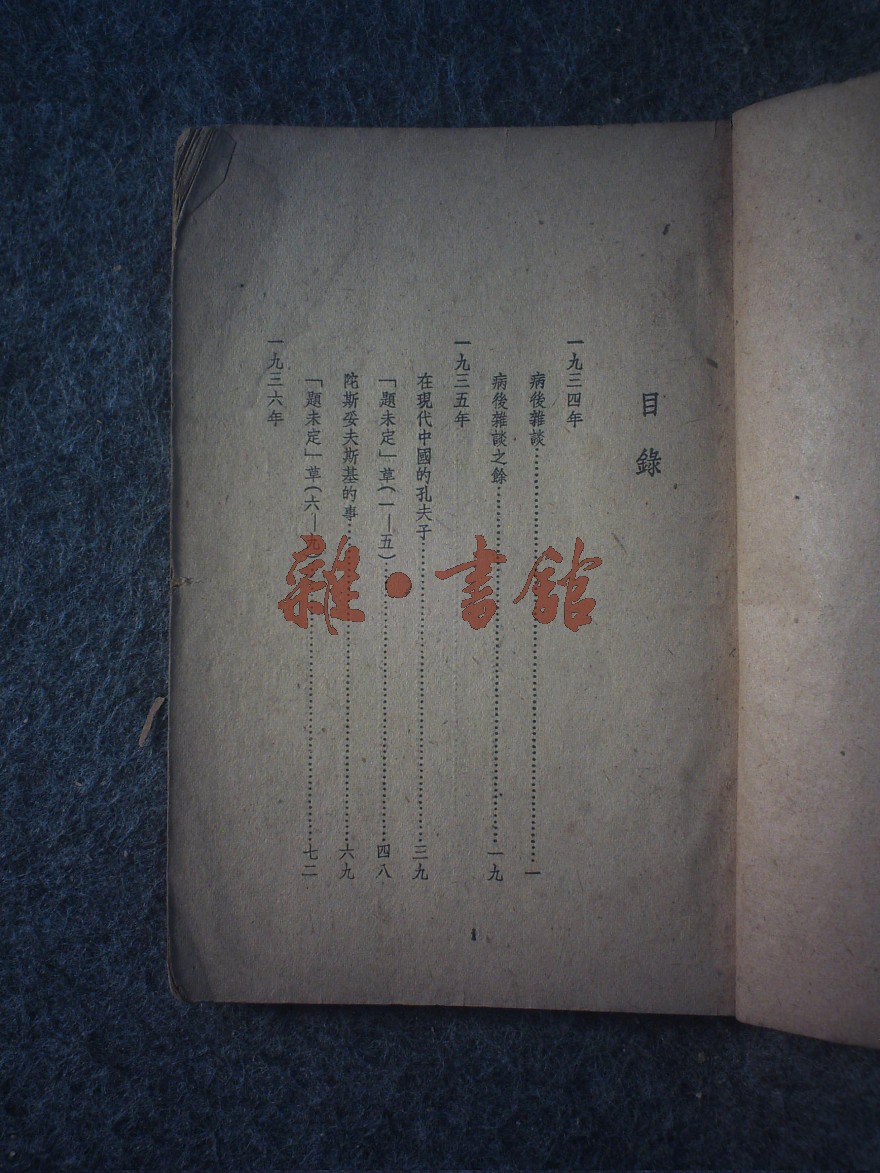 目錄
一九三四年
病後雜談……一
病後雜談之餘……一九
一九三五年
在現代中國的孔夫子……三九
「題未定」草(一—五)……四八
陀斯妥夫斯基的事……六九
「題未定」草(六—九)……七二
一九三六年
1
雜·書館